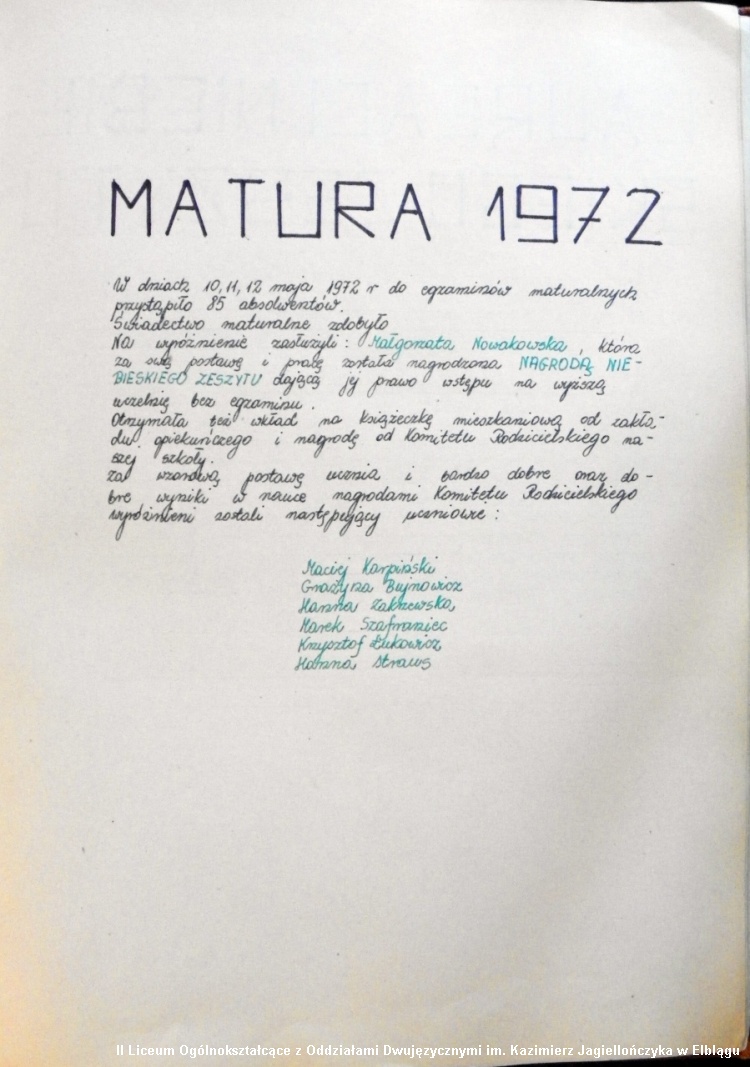 MATURA 1972
W dniach 10, 11, 12 maja 1972 r do egzaminów maturalnych
przystąpiło 85 absolwentów.
Świadectwo maturalne zdobyło
Na wyróżnienie zasłużyli: Małgorzata Nowakowska, która
za swą postawę i pracę została nagrodzona NAGRODĄ NIE-
BIESKIEGO ZESZYTU dającą jej prawo wstępu na wyższą
uczelnię bez egzaminu.
Otrzymała też wkład na książeczkę mieszkaniową od zakła-
du opiekuńczego i nagrodę od Komitetu Rodzicielskiego na-
szej szkoły.
Za wzorową postawę ucznia i bardzo dobre oraz do-
bre wyniki w nauce nagrodami Komitetu Rodzicielskiego
wyróżnieni zostali następujący uczniowie:
Maciej Karpiński
Grażyna Bujnowicz
Hanna Zakrzewska
Marek Szafraniec
Krzysztof Łukowicz
Hanna Straus
II Liceum Ogólnokształcące z Oddziałami Dwujęzycznymi im. Kazimierz Jagiellończyka w Elblągu